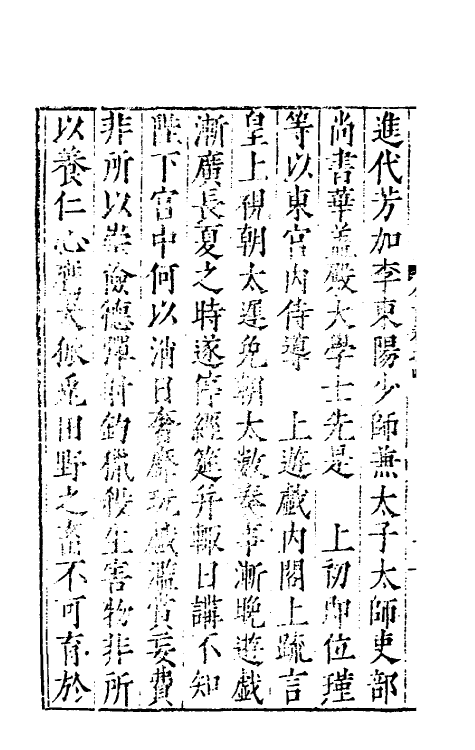 進代芳加李東陽少師兼太子太師吏部
尚書華蓋殿大學士先是　上初即位瑾
等以東宫内侍導　上遊戲内閣上疏言
皇上視朝太遲免朝太數奏事漸晚遊戲
漸廣長夏之時遂停經筵并輟日講不知
陛下宫中何以消日奢靡玩戲濫賞妄費
非所以崇儉德彈射釣獵殺生害物非所
以養仁心鷹犬狐兎田野之畜不可育於